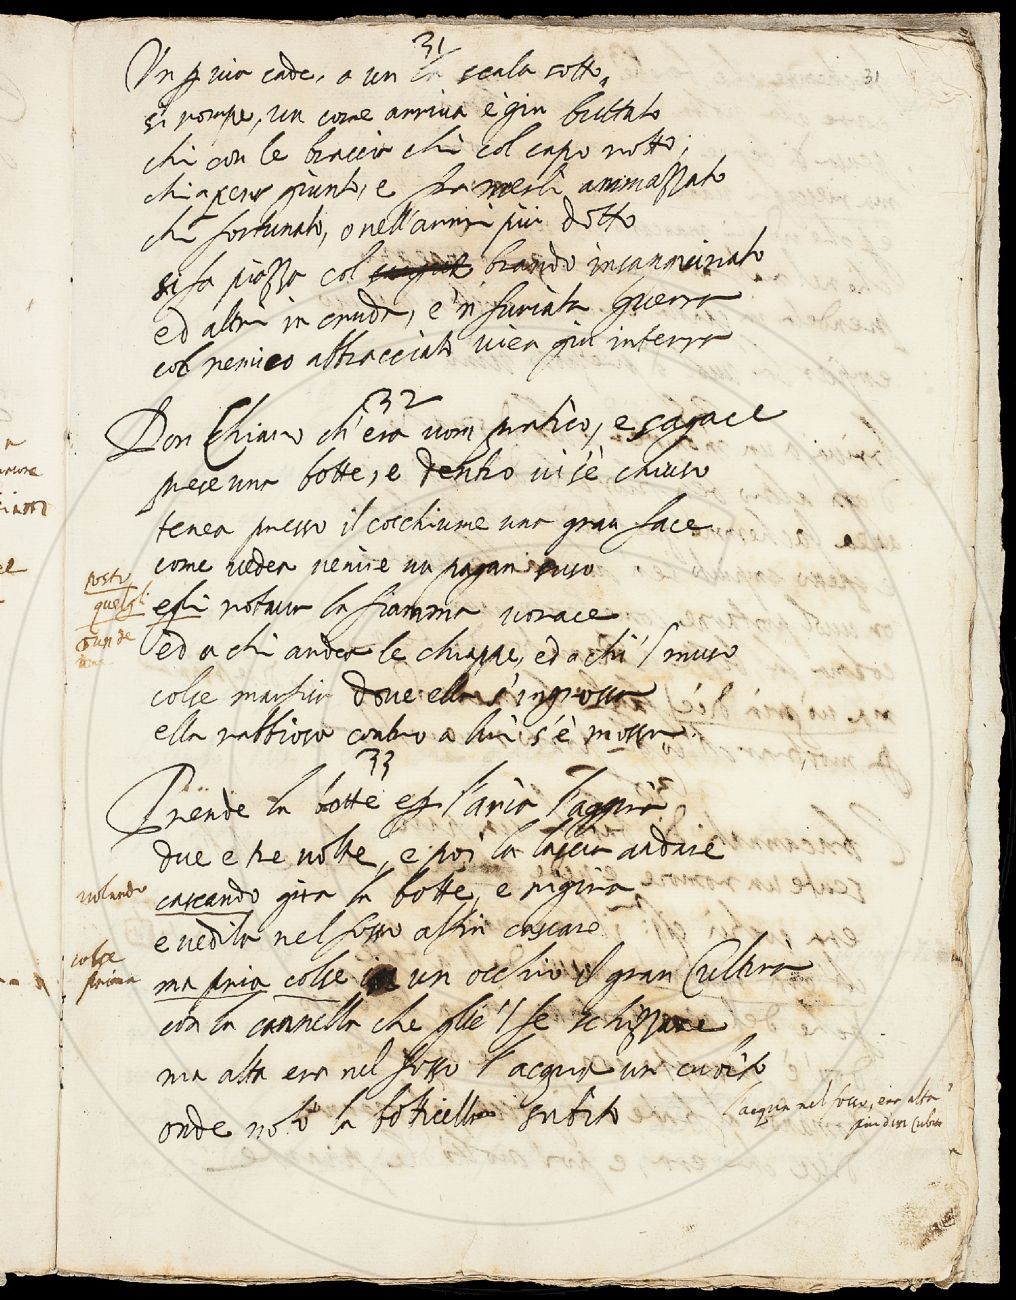 31
31
Un pria cade, a un la scala sotto
si rompe, un come arriva è giù buttato
chi con le braccia chi col capo rotto,
chi apena giunto, e fra merli ammazzato
chi fortunato, o nell'armi più dotto
si fa piazza col brando insanguinato
ed altri in cruda, e infuriata guerra
col nemico abbracciato vien giù in terra
32
Don Chiaro ch'era uom pratico, e sagace
prese una botte, e dentro vi s'è chiuso
tenea presso il cocchiume una gran face
come vedea venire un pagan suso
egli rotava la fiamma vorace
ed a chi ardea le chiappe, ed a chi 'l muso
colse Marfisa dove ella s'ingrossa
ella rabbiosa contro a lui s'è mossa
posto
quelgli
33
Prende la botte e per l'aria l'aggira
due e tre volte, e poi la lascia andare
cascando gira la botte, e rigira
e vedila nel fosso alfin cascare
ma pria colse in un occhio il gran Cultirà
con la cannella che glie'l fe schizzare
ma alta era nel fosso l'acqua un cubito
onde notò la botticella subito
volando
colse
prima
l'acqua nel fosso, era alta
più di un Cubito